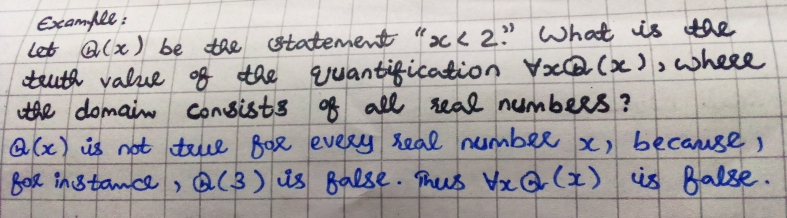 Example:
Let Q(x) be the statement "x < 2." What is the
truth value of the quantification ∀xQ(x), where
the domain consists of all real numbers?
Q(x) is not true for every real number x, because,
for instance, Q(3) is false. Thus ∀xQ(x) is false.